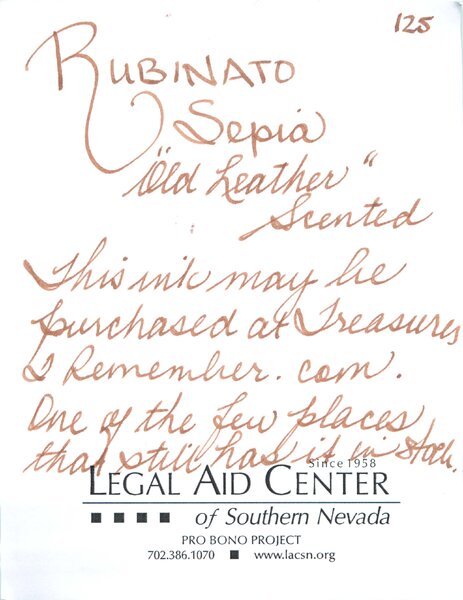 125
RUBINATO
Sepia
"Old Leather"
Scented
This ink may be
purchased at Treasures
2 Remember.com.
One of the few places
that still has it in stock.
Since 1958
LEGAL AID CENTER
of Southern Nevada
PRO BONO PROJECT
702.386.1070 ■ www.lacsn.org